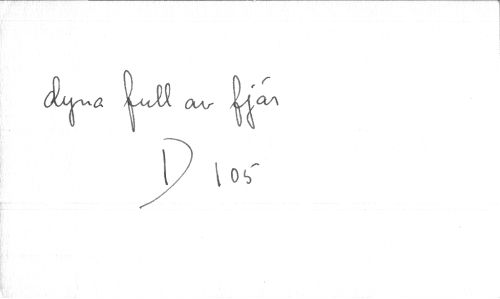 dyna full av fjär
D 105